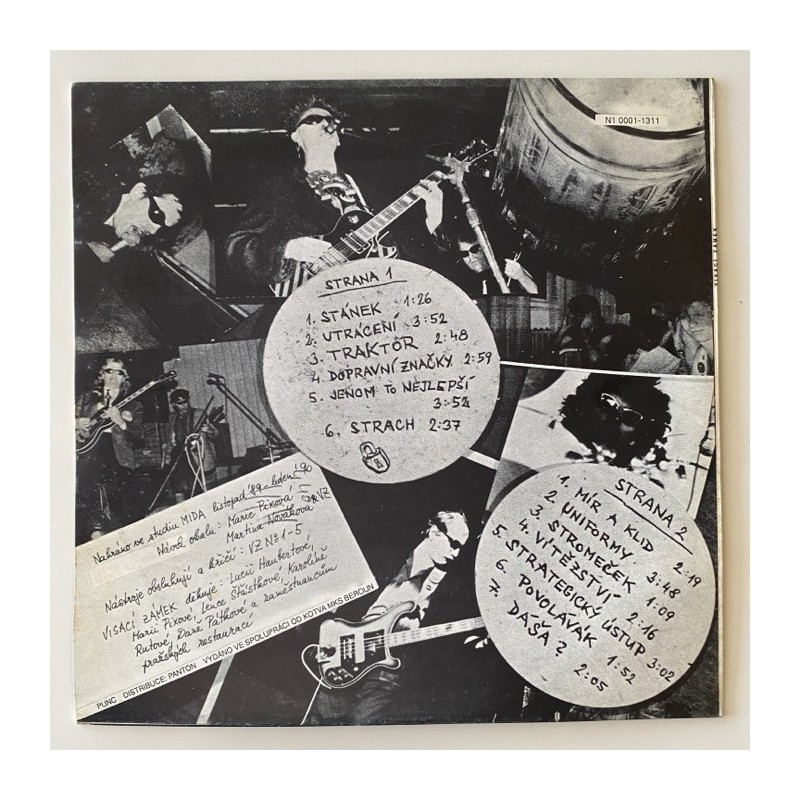 N1 0001-1311
VISACÍ ZÁMEK
STRANA 1
1. STÁNEK 1:26
2. UTRÁCENÍ 3:52
3. TRAKTOR 2:48
4. DOPRAVNÍ ZNAČKY 2:59
5. JENOM TO NEJLEPŠÍ
3:52
6. STRACH 2:37
STRANA 2
1. MÍR A KLID 2:19
2. UNIFORMY 3:48
3. STROMEČEK 1:09
4. VÍTĚZSTVÍ 2:16
5. STRATEGICKÝ ÚSTUP 3:02
6. POVOLÁVÁK 1:52
7. DÁŠA? 2:05
Nahráno ve studiu MIDA listopad '89 - leden '90
Návrh obalu: Marie Píxová
Martina Nováková
Nástroje obsluhují a křičí: VZ No 1-5
VISACÍ ZÁMEK děkuje: Lucii Haubertové,
Marii Píxové, Lence Šťástkové, Karolíně
Rutové, Daně Páthové a zaměstnancům
pražských restaurací
PUNC DISTRIBUCE: PANTON VYDÁNO VE SPOLUPRÁCI OD KOTVA MKS BEROUN